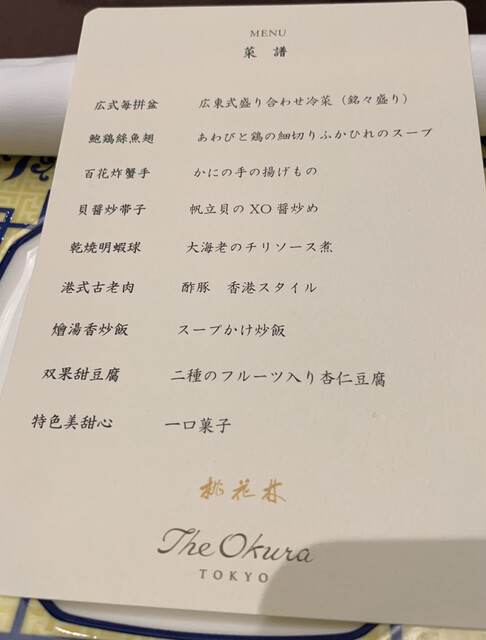 MENU
菜 譜
広式毎拼盆 広東式盛り合わせ冷菜（銘々盛り）
鮑鶏絲魚翅 あわびと鶏の細切りふかひれのスープ
百花炸蟹手 かにの手の揚げもの
貝醬炒帯子 帆立貝のXO醬炒め
乾焼明蝦球 大海老のチリソース煮
港式古老肉 酢豚 香港スタイル
燴湯香炒飯 スープかけ炒飯
双果甜豆腐 二種のフルーツ入り杏仁豆腐
特色美甜心 一口菓子
桃花林
The Okura
TOKYO